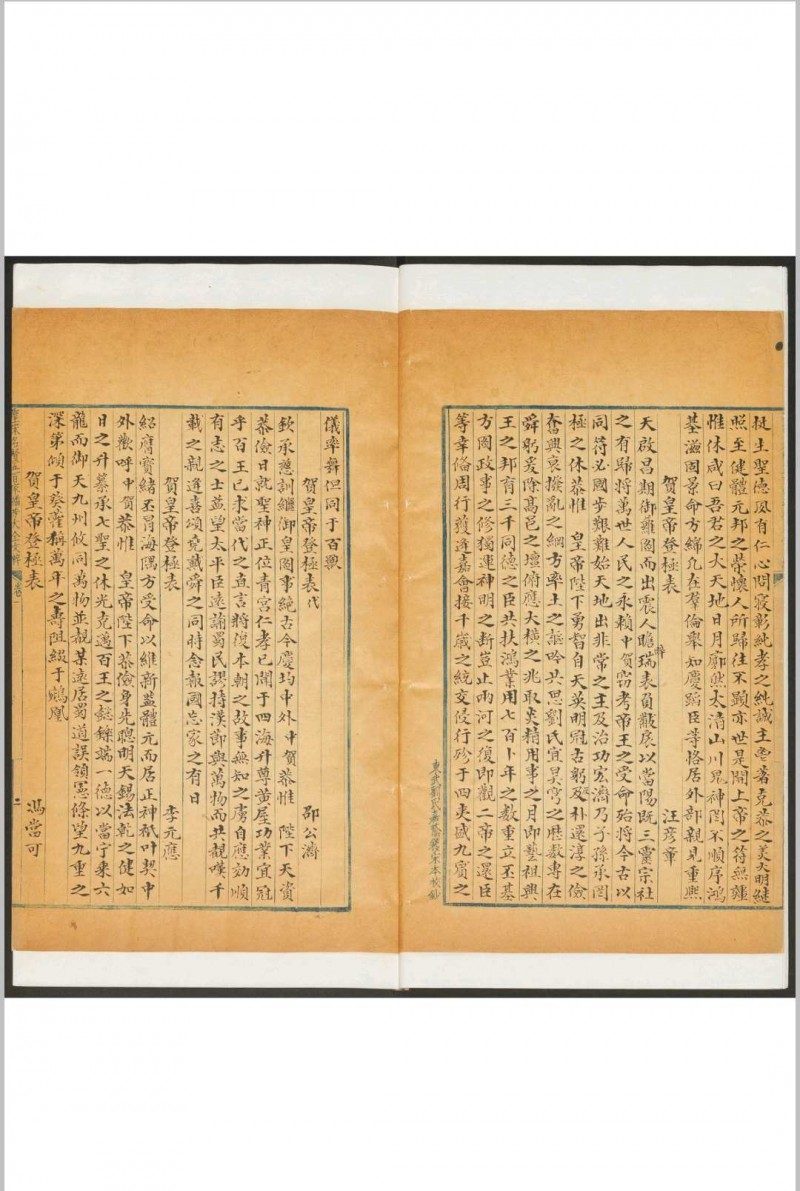 挺生聖德夙有仁心問寢彰純孝之純誠主鬯著克恭之美大明繼
照至健體元邦之榮懷人所歸往不顯亦世是開上帝之符無疆
惟休咸曰吾君之大天地日月廓然太清山川鬼神罔不順序鴻
基滋固景命方綿凡在羣倫舉如慶臣等恪居外部親見重熙
賀皇帝登極表 汪彦章
天啟昌期御離圖而出震人瞻瑞表負黻扆以當陽既三靈宗社
之有歸將萬世人民之永賴中賀竊考帝王之受命殆將今古以
同符必國步艱難始天地出非常之主及治功宏濟乃子孫承罔
極之休恭惟 皇帝陛下勇智自天英明冠古躬及朴還淳之儉
奮興衰撥亂之綱方率土之謳吟共思劉氏宜昊穹之曆數專在
舜躬爰除鄗邑之壇俯應大橫之兆取炎精用事之月即藝祖興
王之邦育三千同德之臣共扶鴻業用七百卜年之數重立丕基
方圖政事之修獨運神明之斷豈止兩河之復即觀二帝之還臣
等幸倫周行獲逢嘉會接千歲之統交侵行殄于四夷盛九賓之
東武劉氏嘉蔭簃宋本校鈔
儀率舞但同于百獸
賀皇帝登極表代 邵公濟
欽承慈訓繼御皇圖事絶古今慶均中外中賀恭惟 陛下天資
恭儉日就聖神正位青宫仁孝已聞于四海升尊黃屋功業宜冠
乎百王已求當代之直言將復本朝之故事無知之虜自應効順
有志之士益望太平臣遠誦蜀民謬持漢節與萬物而共覩嘆千
載之親逢喜頌堯戴舜之同時念報國忘家之有日
賀皇帝登極表 李元應
紹膺寶緒丕冒海隅方受命以維新盖體元而居正神祇叶契中
外歡呼中賀恭惟 皇帝陛下恭儉身先聰明天錫法乾之健如
日之升纂承七聖之休光克邁百王之懿鑠端一德以當宁乘六
龍而御天九州攸同萬物並覩某遠居蜀道誤領憲條望九重之
深第傾于葵藿稱萬年之壽阻綴于鵷凰
賀皇帝登極表 馮當可
二